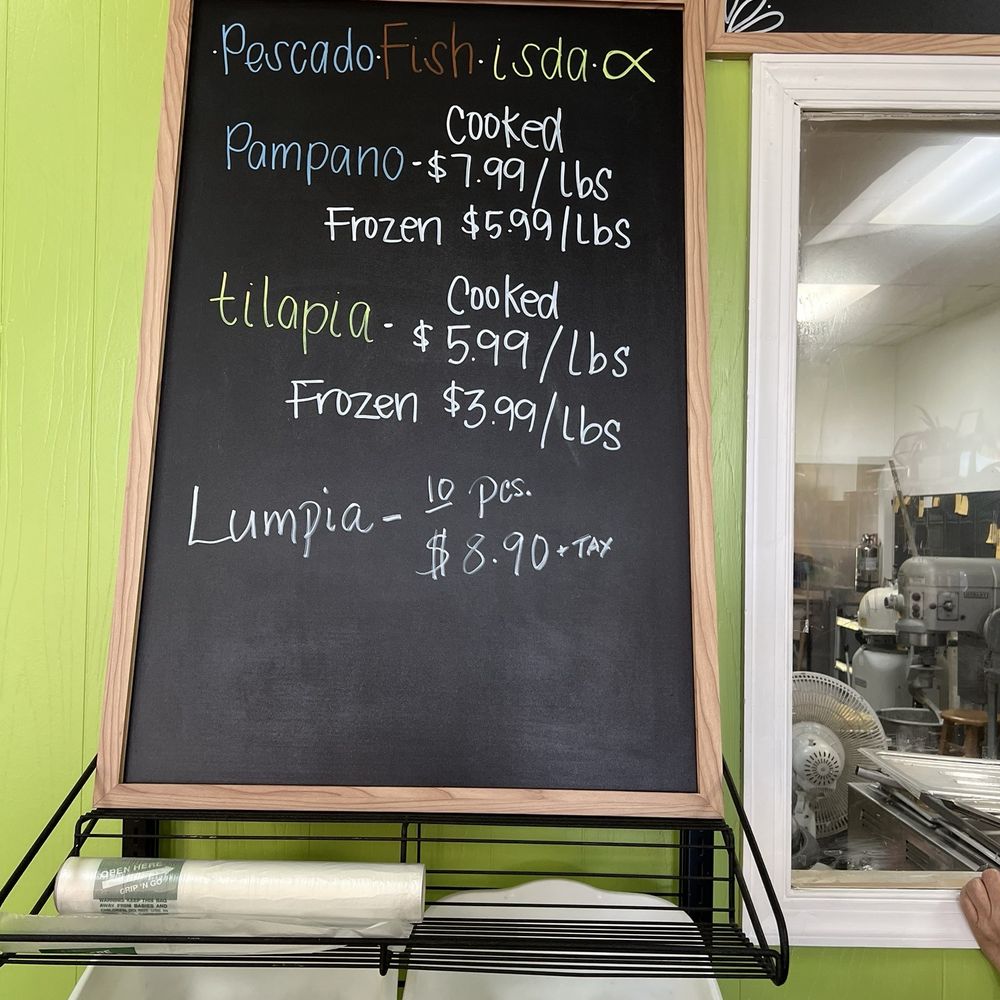 ·Pescado·Fish·isda·
Cooked
Pampano - $7.99/lbs
Frozen $5.99/lbs
Cooked
tilapia - $5.99/lbs
Frozen $3.99/lbs
10 pcs.
Lumpia - $8.90 + TAX
OPEN HERE
GRIP 'N GO
WARNING KEEP THIS BAG
AWAY FROM BABIES AND